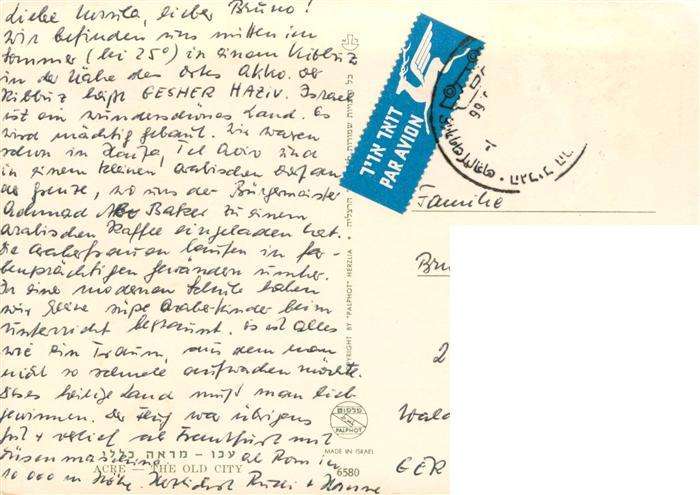 Liebe Ursula, lieber Bruno!
Wir befinden uns mitten im
Sommer (bei 25°) in einem Kibbuz
in der Nähe des Ortes Akko. Der
Kibbuz heißt GESHER HAZIV. Israel
ist ein wunderschönes Land. Es
wird mächtig gebaut. Wir waren
schon in Haifa, Tel Aviv und
in einem kleinen arabischen Dorf an
der Grenze, wo uns der Bürgermeister
Achmad Baker zu einem
arabischen Kaffee eingeladen hat.
Die Araberfrauen laufen in far-
benprächtigen Gewändern umher.
In einer modernen Schule haben
wir kleine süße Araberkinder beim
Unterricht bestaunt. Es ist alles
wie ein Traum, aus dem man
nicht so schnell aufwachen möchte.
Dieses heilige Land muß man lieb-
gewinnen. Der Flug war übrigens
gut + verlief ab Frankfurt mit
Düsenmaschine ab Rom in
10 000 m Höhe. Herzlichst Rudi + Hanne
דואר אויר
PAR AVION
Familie
Bru
2
Wald
GER
COPYRIGHT BY "PALPHOT" HERZLIA
פלפוט
PALPHOT
MADE IN ISRAEL
עכו – מראה כללי
ACRE — THE OLD CITY
6580